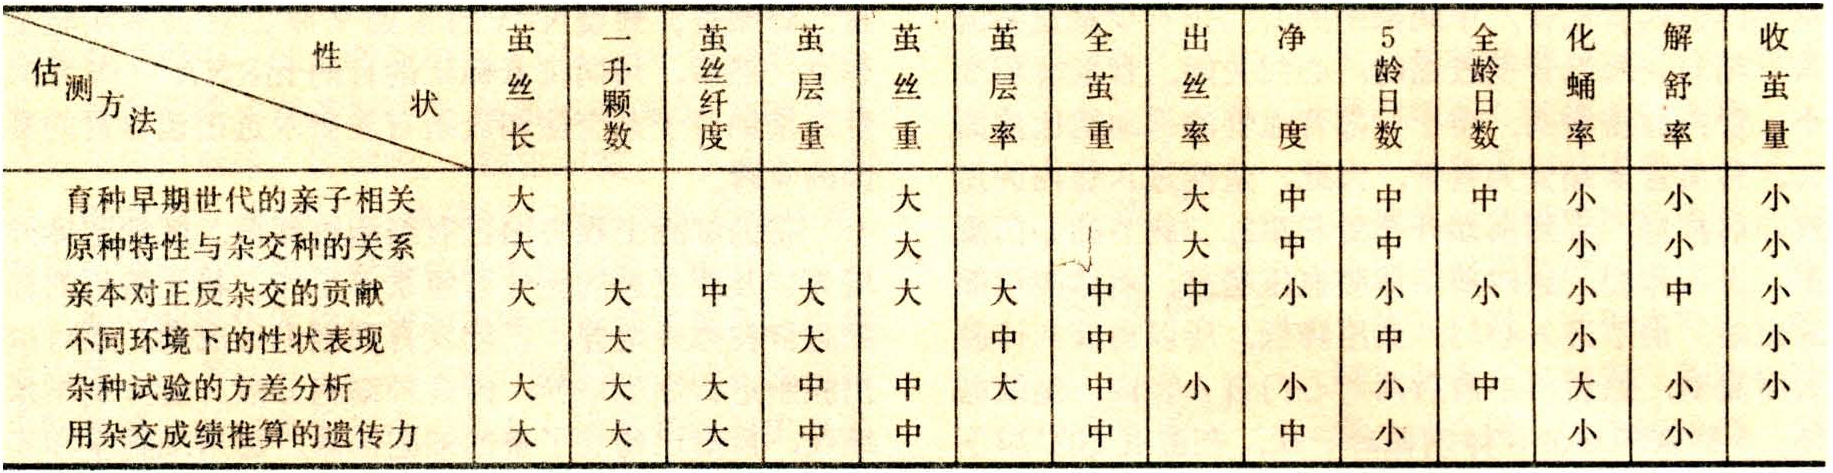 估测方法 性状 茧丝长 一升颗数 茧丝纤度 茧层重 茧丝重 茧层率 全茧重 出丝率 净度 5龄日数 全龄日数 化蛹率 解舒率 收茧量
育种早期世代的亲子相关 大 大 大 中 中 中 小 小 小
原种特性与杂交种的关系 大 大 大 中 中 小 小 小
亲本对正反杂交的贡献 大 大 中 大 大 大 中 中 小 小 小 小 中 小
不同环境下的性状表现 大 大 中 中 中 小 小
杂种试验的方差分析 大 大 大 中 中 大 中 小 小 小 中 大 小 小
用杂交成绩推算的遗传力 大 大 大 中 中 中 中 小 小 小